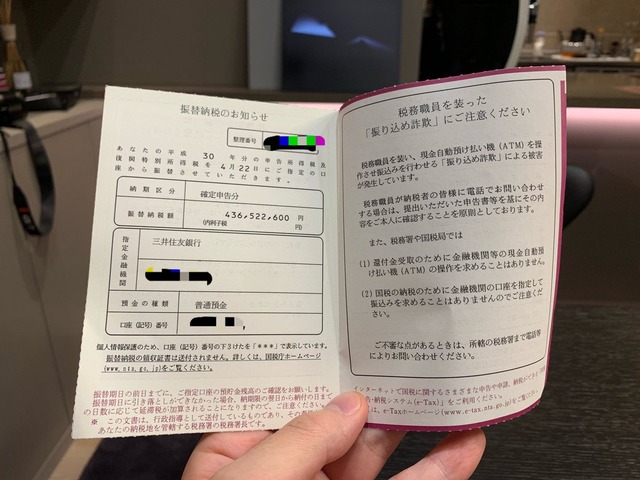 振替納税のお知らせ
整理番号
あなたの平成 30 年分の申告所得税及
復興特別所得税を4月22日にご指定の口
座から振替させていただきます。
納期区分 確定申告分
振替納税額 436,522,600 円
(内利子税 円)
指定金融機関 三井住友銀行
預金の種類 普通預金
口座(記号)番号
個人情報保護のため、口座(記号)番号の下3けたを「***」で表示しています。
振替納税の領収証書は送付されません。詳しくは、国税庁ホームページ
(www.nta.go.jp)をご覧ください。
振替期日の前日までに、ご指定口座の預貯金残高のご確認をお願いします。
振替期日に引き落としができなかった場合、納期限の翌日から納付の日まで
の日数に応じて延滞税が加算されることになりますので、ご注意ください。
※ この文書は、行政指導として送付しているものであり、その
あなたの納税地を管轄する税務署の税務署長です。
税務職員を装った
「振り込め詐欺」にご注意ください
税務職員を装い、現金自動預け払い機(ATM)を操
作させ振込みを行わせる「振り込め詐欺」による被害
が発生しています。
税務職員が納税者の皆様に電話でお問い合わせ
する場合は、提出いただいた申告書等を基にその内
容をご本人に確認することを原則としております。
また、税務署や国税局では
(1) 還付金受取のために金融機関等の現金自動預
け払い機(ATM)の操作を求めることはありません。
(2) 国税の納付のために金融機関の口座を指定して
振込みを求めることはありませんのでご注意くださ
い。
ご不審な点があるときは、所轄の税務署まで電話等
によりお問い合わせください。
インターネットで国税に関するさまざまな申告や申請、納税ができる「国税
告・納税システム(e-Tax)」をご利用ください。
は、e-Taxホームページ(www.e-tax.nta.go.jp)をご覧ください。